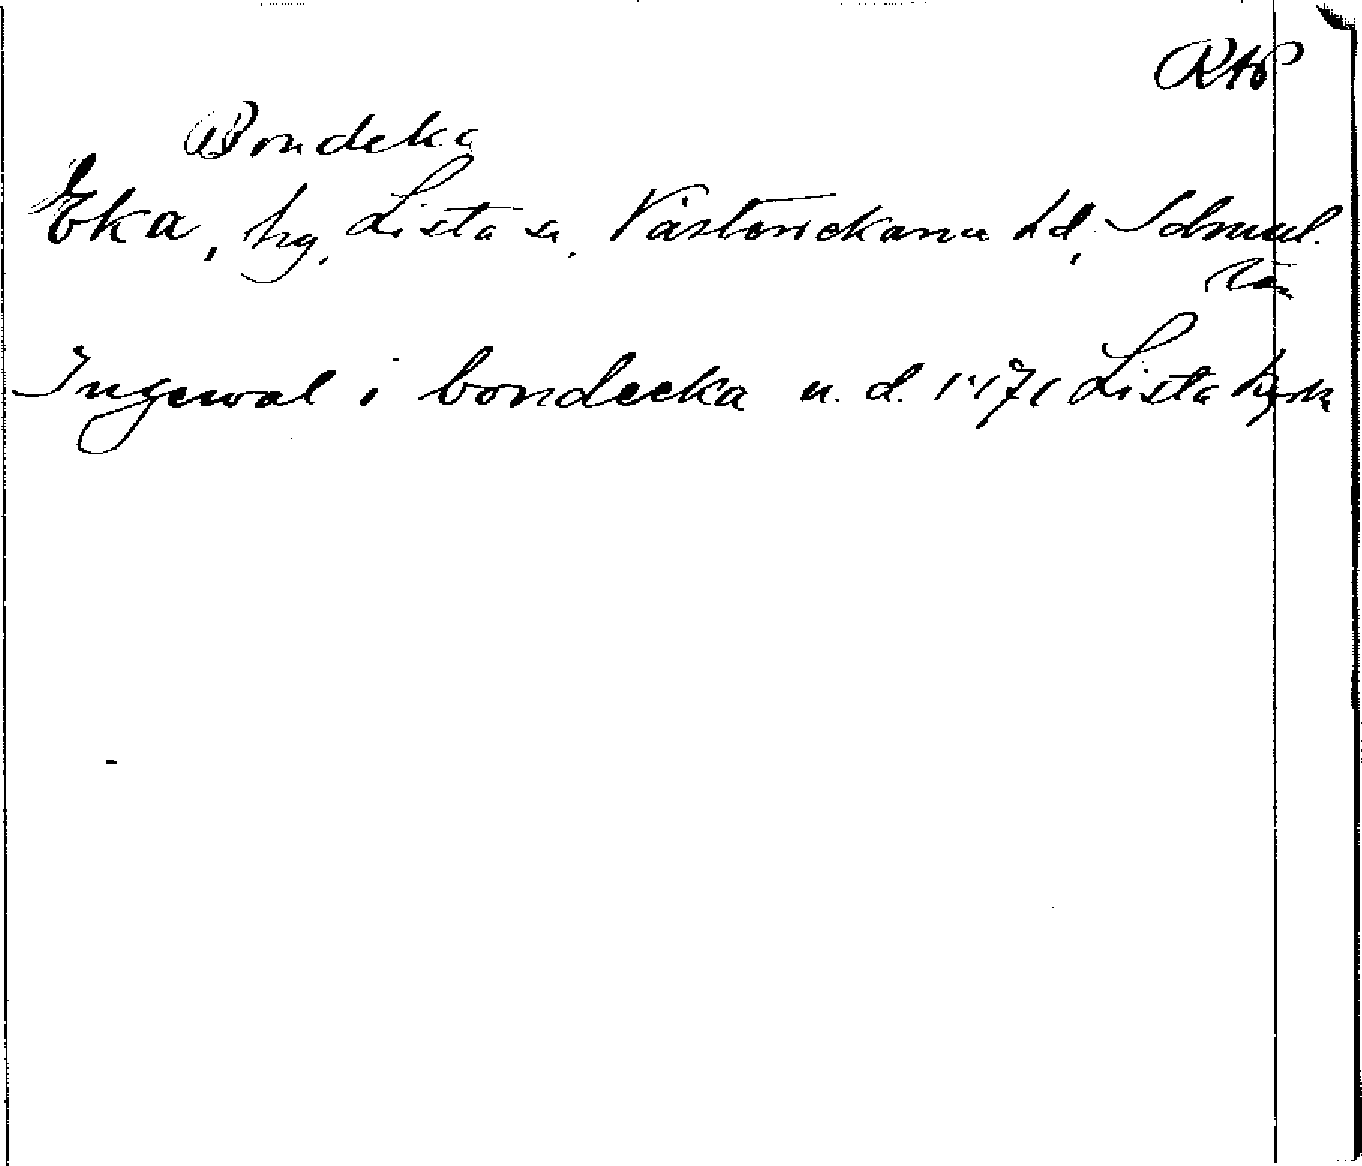 RAP
Bondeka
Eka, hg, Lista sn, Västerrekarne hd, Sdrmnl.
Ingewal i bondecka u. d. 1471 Lista kyrka